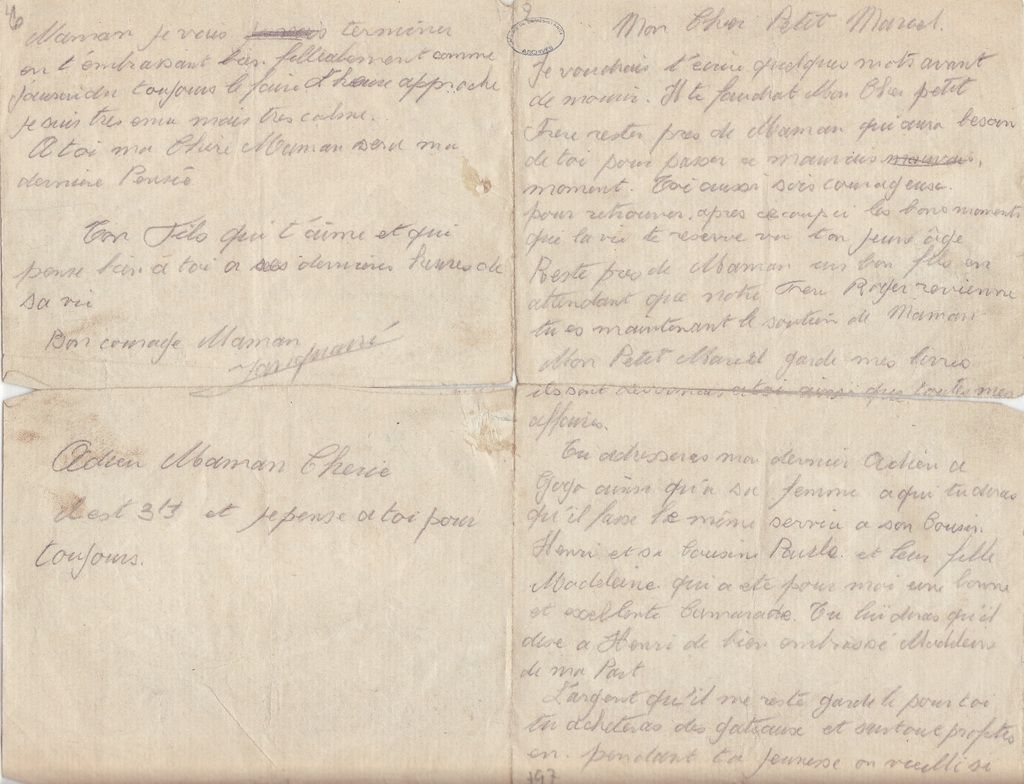 6
Maman je vais terminer
en t'embrassant bien fillialement comme
toujours le faire L'heure approche
je suis tres emu mais tres calme.
A toi ma Chère Maman sera ma
dernière Pensée
Ton Fils qui t'aime et qui
pense bien à toi a ses dernieres heures de
sa vie
Bon courage Maman
Adieu Maman Cherie
il est 3h et je pense a toi pour
toujours.
2
ARCHIVES
Mon Cher Petit Marcel.
Je voudrais t'ecrire quelques mots avant
de mourir. Il te faudrat Mon Cher petit
Frere rester pres de Maman qui aura besoin
de toi pour passer ce mauvais
moment. Toi aussi sois courageuse.
pour retrouver, apres ce coup ci les bons moments
que la vie te reserve vu ton jeune âge
Reste pres de Maman un bon fils en
attendant que notre Frere Roger revienne
tu es maintenant le soutien de Maman
Mon Petit Marcel garde mes livres
ils sont a toi ainsi que toutes mes
affaires.
Tu adresseras mon dernier Adieu a
Gogo ainsi qu'a sa femme a qui tu diras
qu'il fasse le même service a son Cousin
Henri et sa Cousine Paule et leur fille
Madeleine qui a eté pour moi une bonne
et excellente Camarade. Tu lui diras qu'il
dise a Henri de bien embrassé Madeleine
de ma Part
L'argent qu'il me reste garde le pour toi
tu acheteras des gateaux et surtout profites
en pendant ta jeunesse on vieilli si
197